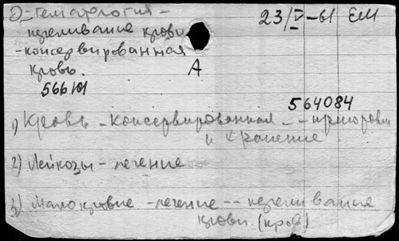 2) - Гематология -
23/V-61 ЕМ
переливание крови
- консервированная
кровь.
А
566101
564084
1) Кровь - консервированная --
и хранение
2) Лейкозы - лечение
3) Малокровие - лечение -- переливание
крови. (кров)